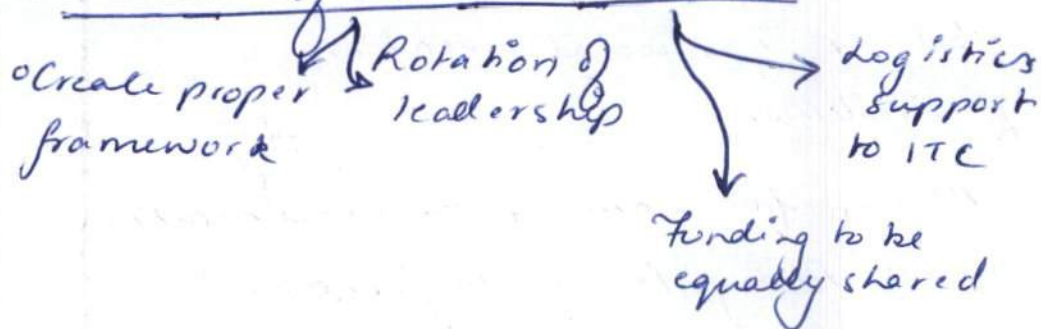 °Create proper
framework
Rotation of
leadership
Logistics
support
to ITC
Funding to be
equally shared